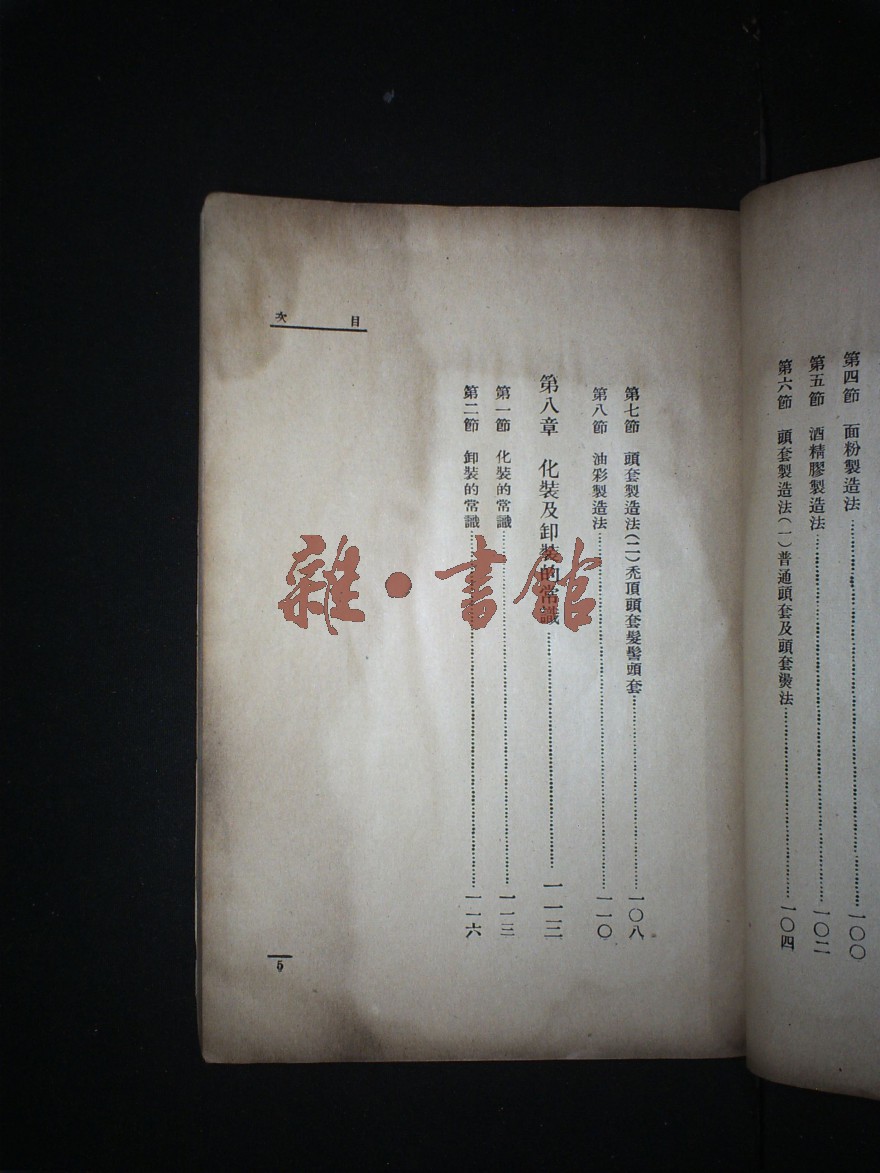 第四節　面粉製造法……一〇〇
第五節　酒精膠製造法……一〇二
第六節　頭套製造法(一)普通頭套及頭套燙法……一〇四
目次
第七節　頭套製造法(二)禿頂頭套髮髻頭套……一〇八
第八節　油彩製造法……一一〇
第八章　化裝及卸裝的常識……一一三
第一節　化裝的常識……一一三
第二節　卸裝的常識……一一六
5
雜·書館